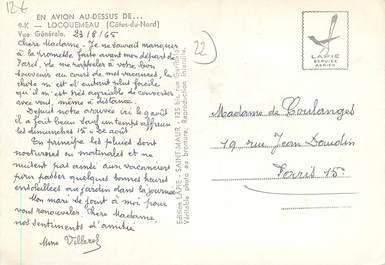 12€
EN AVION AU-DESSUS DE...
9-K — LOCQUEMEAU (Côtes-du-Nord)
Vue Générale. 23/8/65
Chère Madame - Je ne saurait manquer
à la promesse faite avant mon départ de
Paris, de me rappeler à votre bon
souvenir au cours de mes vacances, la
chose m'est d'autant plus facile
qu'il m'est très agréable de converser
avec vous, même à distance.
Depuis notre arrivée ici le 9 août
il a fait beau sauf un temps affreux
les dimanches 15 - 22 août
En principe les pluies sont
nocturnes ou matinales et ne
nuitent pas ainsi aux vacanciers
pour passer quelques bonnes heures
ensoleillées au jardin dans la journée
Mon mari se joint à moi pour
vous renouveler, Chère Madame,
nos sentiments d'amitié
Mme Villerel
Edition LAPIE - SAINT-MAUR - 125 bis, rue Garibaldi
Véritable photo au bromure, Reproduction interdite.
22
LAPIE
SERVICE
AÉRIEN
Madame de Coulanges
19, rue Jean Daudin
Paris 15e